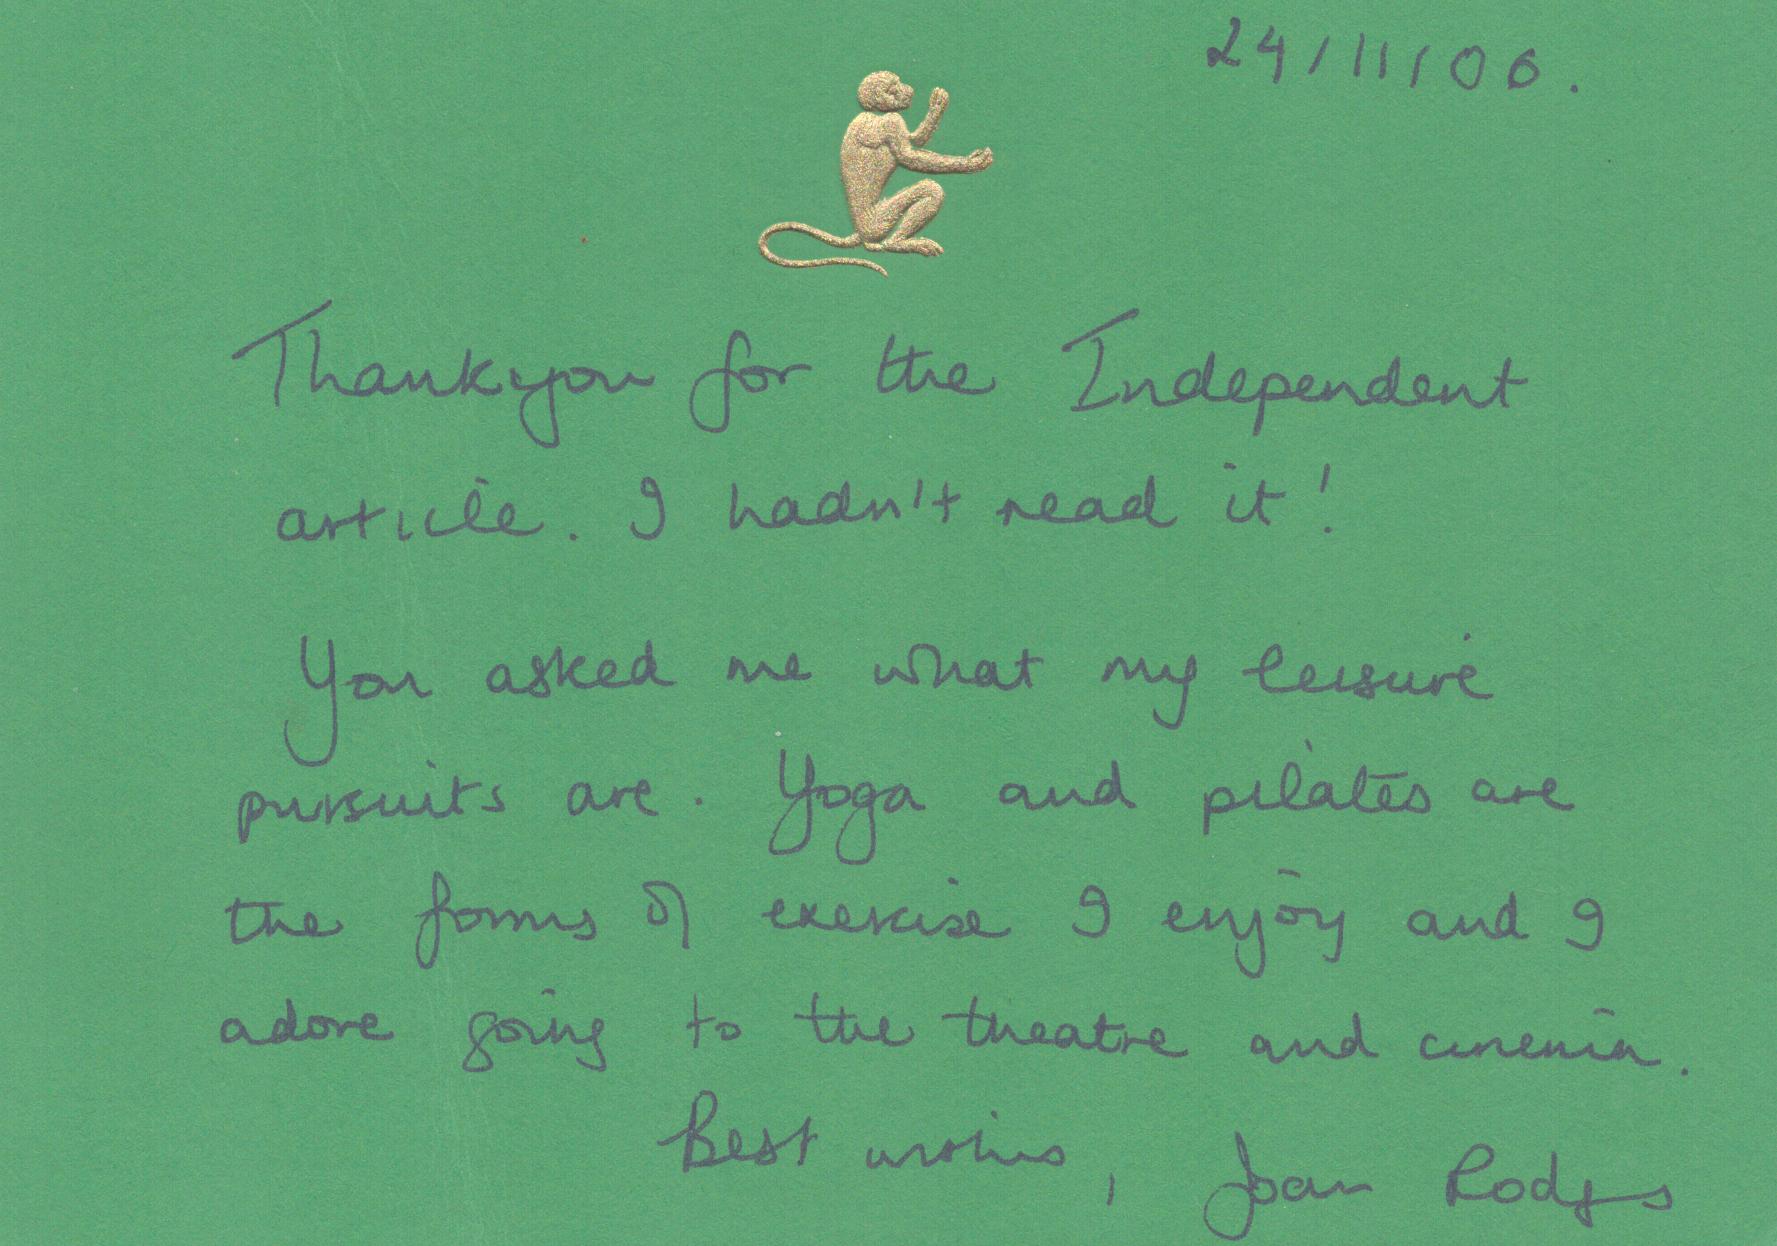 24/11/06.
Thankyou for the Independent
article. I hadn't read it!
You asked me what my leisure
pursuits are. Yoga and pilates are
the forms of exercise I enjoy and I
adore going to the theatre and cinema.
Best wishes, Joan Rodgers